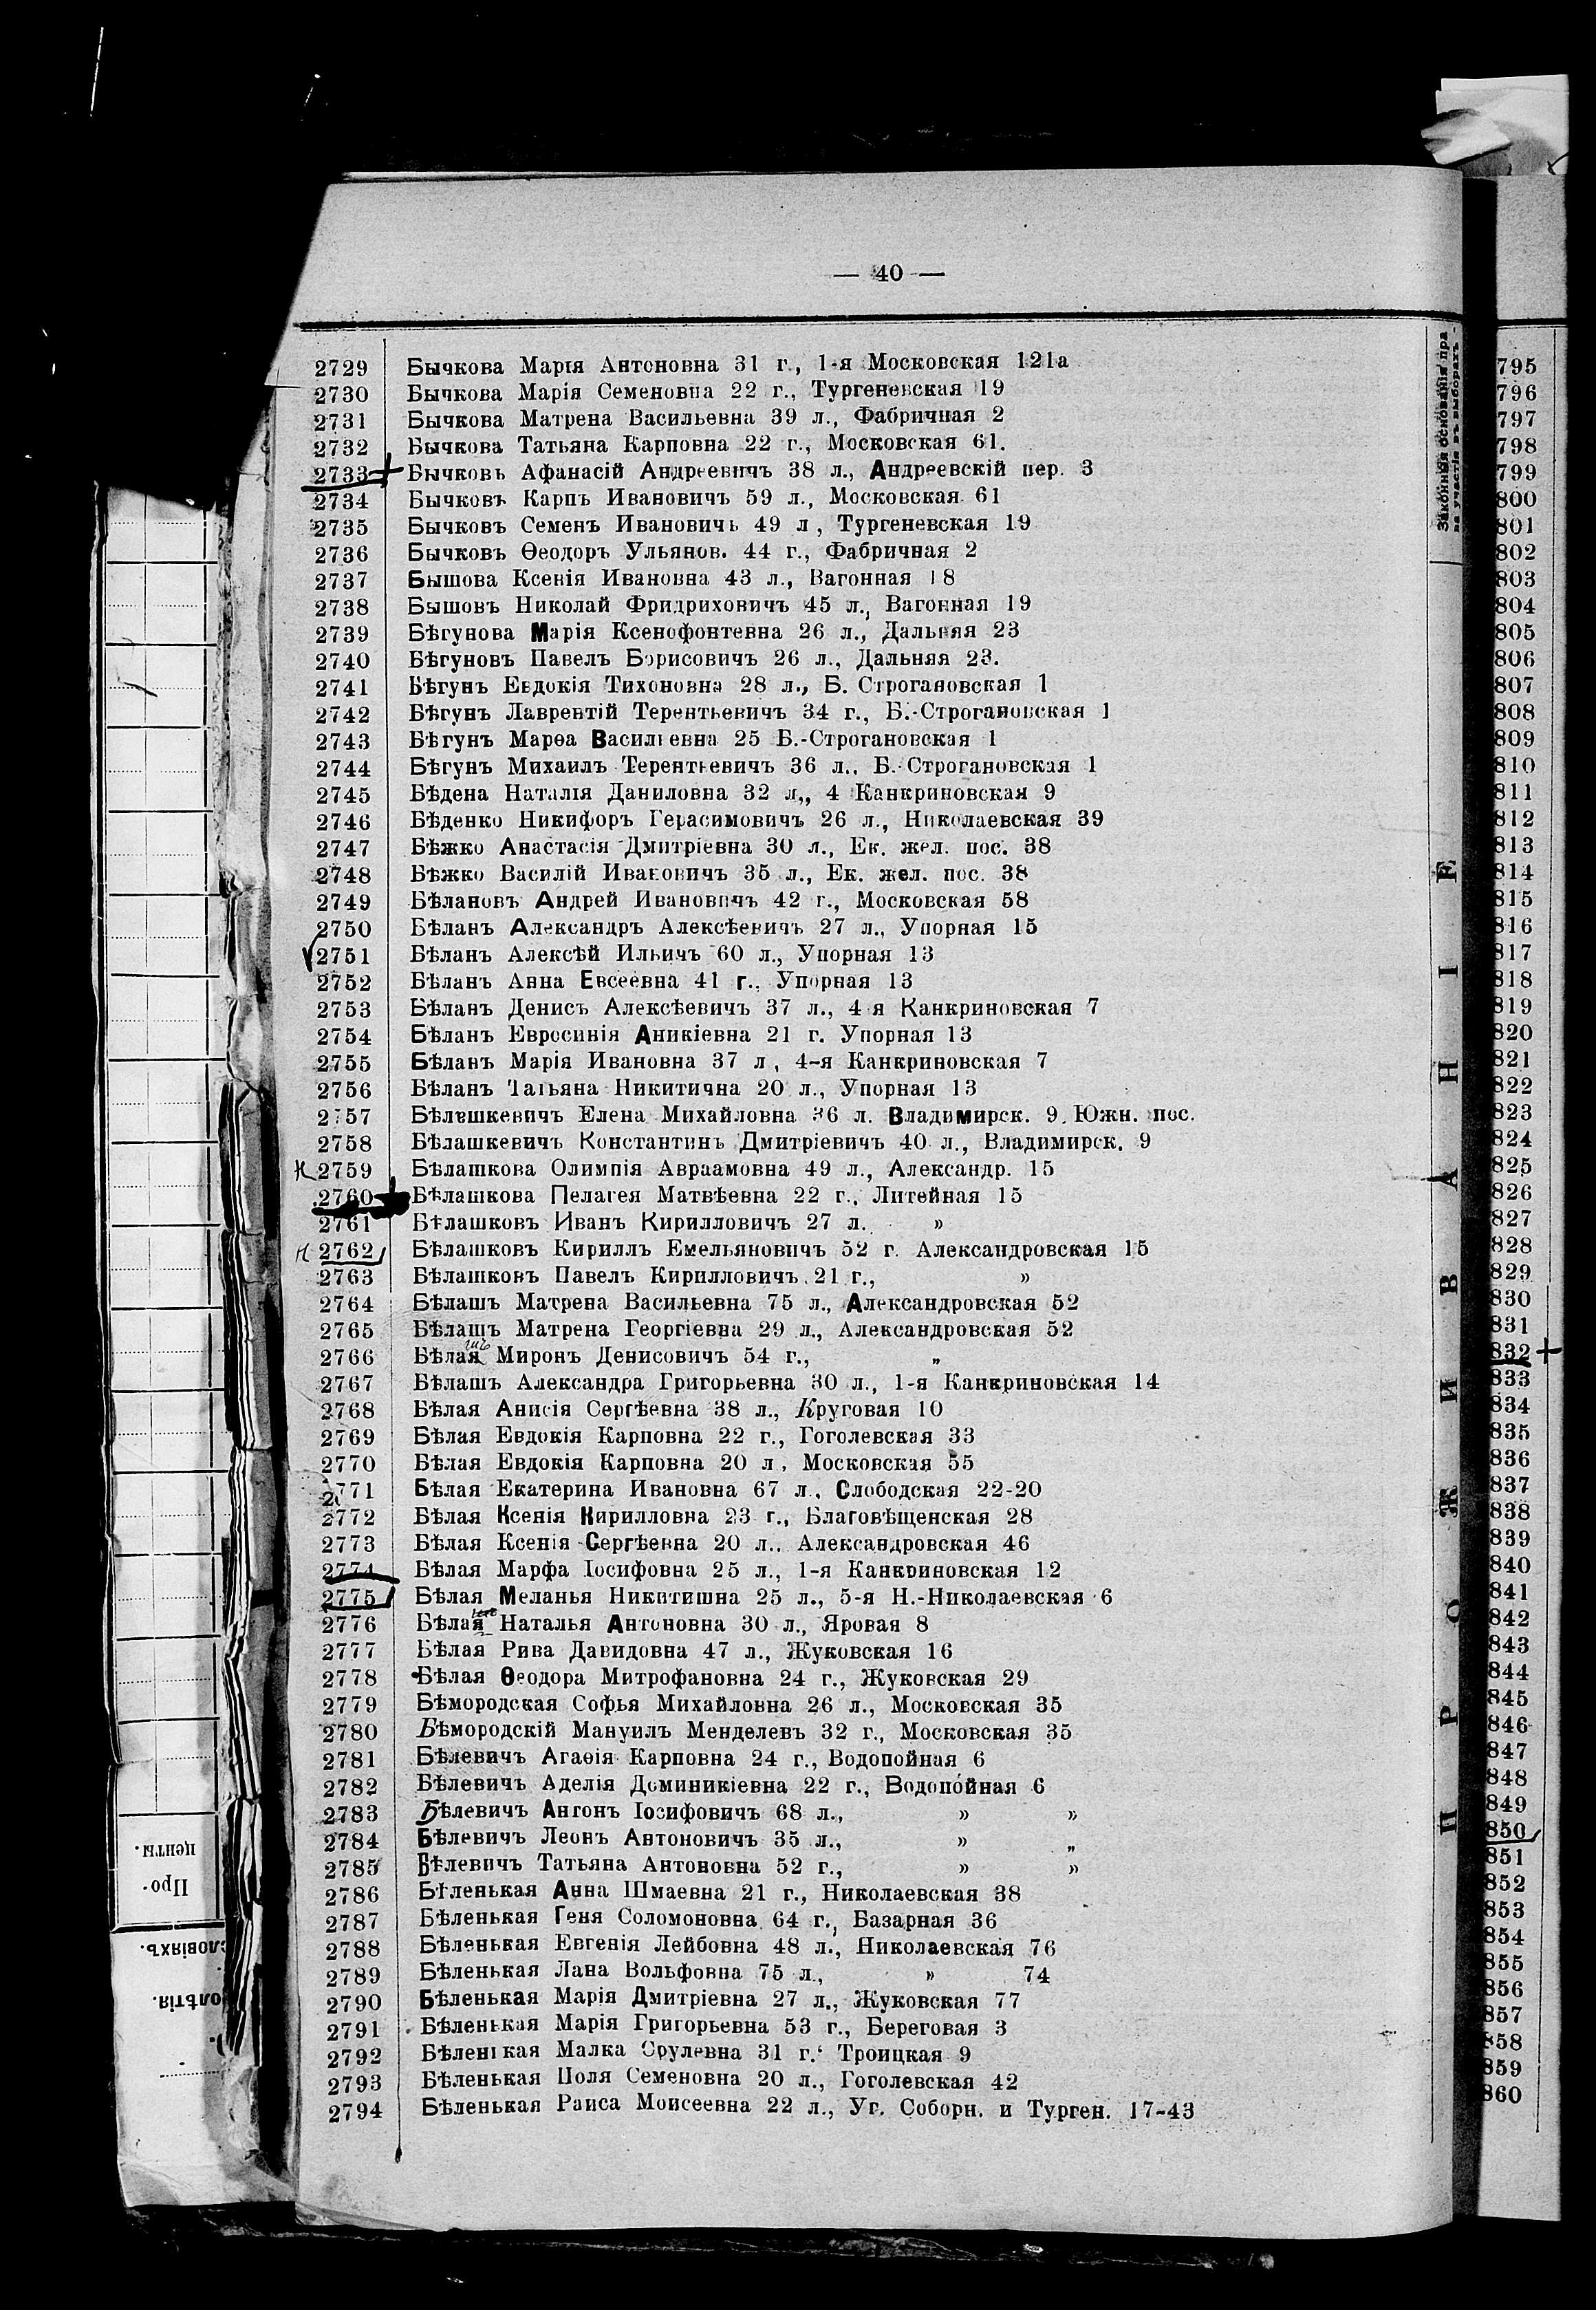 — 40 —
2729 Бычкова Марія Антоновна 31 г., 1-я Московская 121а
2730 Бычкова Марія Семеновна 22 г., Тургеневская 19
2731 Бычкова Матрена Васильевна 39 л., Фабричная 2
2732 Бычкова Татьяна Карповна 22 г., Московская 61.
2733 Бычковъ Афанасій Андреевичъ 38 л., Андреевскій пер. 3
2734 Бычковъ Карпъ Ивановичъ 59 л., Московская 61
2735 Бычковъ Семенъ Ивановичъ 49 л., Тургеневская 19
2736 Бычковъ Ѳеодоръ Ульянов. 44 г., Фабричная 2
2737 Бышова Ксенія Ивановна 43 л., Вагонная 18
2738 Бышовъ Николай Фридриховичъ 45 л., Вагонная 19
2739 Бѣгунова Марія Ксенофонтевна 26 л., Дальняя 23
2740 Бѣгуновъ Павелъ Борисовичъ 26 л., Дальняя 23.
2741 Бѣгунъ Евдокія Тихоновна 28 л., Б. Строгановская 1
2742 Бѣгунъ Лаврентій Терентьевичъ 34 г., Б.-Строгановская 1
2743 Бѣгунъ Марѳа Васильевна 25 Б.-Строгановская 1
2744 Бѣгунъ Михаилъ Терентьевичъ 36 л., Б.-Строгановская 1
2745 Бѣдена Наталія Даниловна 32 л., 4 Канкриновская 9
2746 Бѣденко Никифоръ Герасимовичъ 26 л., Николаевская 39
2747 Бѣжко Анастасія Дмитріевна 30 л., Ек. жел. пос. 38
2748 Бѣжко Василій Ивановичъ 35 л., Ек. жел. пос. 38
2749 Бѣлановъ Андрей Ивановичъ 42 г., Московская 58
2750 Бѣланъ Александръ Алексѣевичъ 27 л., Упорная 15
2751 Бѣланъ Алексѣй Ильичъ 60 л., Упорная 13
2752 Бѣланъ Анна Евсеевна 41 г., Упорная 13
2753 Бѣланъ Денисъ Алексѣевичъ 37 л., 4 я Канкриновская 7
2754 Бѣланъ Евросинія Аникіевна 21 г. Упорная 13
2755 Бѣланъ Марія Ивановна 37 л., 4-я Канкриновская 7
2756 Бѣланъ Татьяна Никитична 20 л., Упорная 13
2757 Бѣлешкевичъ Елена Михайловна 36 л. Владимирск. 9, Южн. пос.
2758 Бѣлашкевичъ Константинъ Дмитріевичъ 40 л., Владимирск. 9
2759 Бѣлашкова Олимпія Авраамовна 49 л., Александр. 15
2760 Бѣлашкова Пелагея Матвѣевна 22 г., Литейная 15
2761 Бѣлашковъ Иванъ Кирилловичъ 27 л. »
2762 Бѣлашковъ Кириллъ Емельяновичъ 52 г. Александровская 15
2763 Бѣлашковъ Павелъ Кирилловичъ 21 г., »
2764 Бѣлашъ Матрена Васильевна 75 л., Александровская 52
2765 Бѣлашъ Матрена Георгіевна 29 л., Александровская 52
2766 Бѣлая Миронъ Денисовичъ 54 г., „
2767 Бѣлашъ Александра Григорьевна 30 л., 1-я Канкриновская 14
2768 Бѣлая Анисія Сергѣевна 38 л., Круговая 10
2769 Бѣлая Евдокія Карповна 22 г., Гоголевская 33
2770 Бѣлая Евдокія Карповна 20 л., Московская 55
2771 Бѣлая Екатерина Ивановна 67 л., Слободская 22-20
2772 Бѣлая Ксенія Кирилловна 23 г., Благовѣщенская 28
2773 Бѣлая Ксенія Сергѣевна 20 л., Александровская 46
2774 Бѣлая Марфа Іосифовна 25 л., 1-я Канкриновская 12
2775 Бѣлая Меланья Никитишна 25 л., 5-я Н.-Николаевская 6
2776 Бѣлая Наталья Антоновна 30 л., Яровая 8
2777 Бѣлая Рива Давидовна 47 л., Жуковская 16
2778 Бѣлая Ѳеодора Митрофановна 24 г., Жуковская 29
2779 Бѣмородская Софья Михайловна 26 л., Московская 35
2780 Бѣмородскій Мануилъ Менделевъ 32 г., Московская 35
2781 Бѣлевичъ Агаѳія Карповна 24 г., Водопойная 6
2782 Бѣлевичъ Аделія Доминикіевна 22 г., Водопойная 6
2783 Бѣлевичъ Антонъ Іосифовичъ 68 л., » »
2784 Бѣлевичъ Леонъ Антоновичъ 35 л., » „
2785 Бѣлевичъ Татьяна Антоновна 52 г., » »
2786 Бѣленькая Анна Шмаевна 21 г., Николаевская 38
2787 Бѣленькая Геня Соломоновна 64 г., Базарная 36
2788 Бѣленькая Евгенія Лейбовна 48 л., Николаевская 76
2789 Бѣленькая Лана Вольфовна 75 л., » 74
2790 Бѣленькая Марія Дмитріевна 27 л., Жуковская 77
2791 Бѣленькая Марія Григорьевна 53 г., Береговая 3
2792 Бѣленькая Малка Срулевна 31 г. Троицкая 9
2793 Бѣленькая Поля Семеновна 20 л., Гоголевская 42
2794 Бѣленькая Раиса Моисеевна 22 л., Уг. Соборн. и Турген. 17-43
Законныя основанія пра
на участіе въ выборахъ
ПРОЖИВАНІЕ
795
796
797
798
799
800
801
802
803
804
805
806
807
808
809
810
811
812
813
814
815
816
817
818
819
820
821
822
823
824
825
826
827
828
829
830
831
832
833
834
835
836
837
838
839
840
841
842
843
844
845
846
847
848
849
850
851
852
853
854
855
856
857
858
859
860
Про-
центы.